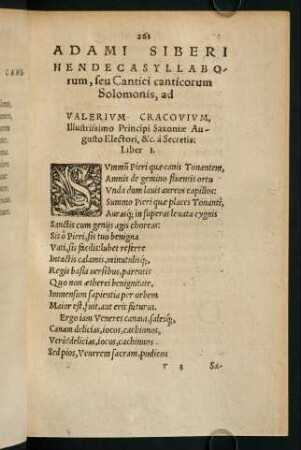 261
ADAMI SIBERI
HENDECASYLLABO-
rum, seu Cantici canticorum
Solomonis, ad
VALERIVM CRACOVIVM,
Illustrissimo Principi Saxoniæ Au-
gusto Electori, &c. á Secretis:
Liber 1.
SVmmũ Pieri quæ canis Tonantem,
Amnis de gemino fluentis ortu
Vnda dum lauis aureos capillos:
Summo Pieri quæ places Tonanti,
Auras&#113;; in superas leuata cygnis
Sanctis cum genijs agis choreas:
Sis ô Pieri, sis tuo benigna
Vati, sis facilis: lubet referre
Intactis calamis, minutulisq;,
Regis basia uersibus, parentis
Quo non ætherei benignitate,
Immensum sapientia per orbem
Maior est, fuit, aut erit futurus.
Ergo iam Veneres canam, salesq;,
Canam delicias, iocos, cachinnos,
Verò delicias, iocos, cachinnos
Sed pios, Venerem sacram, pudicos
T 3 Sa-